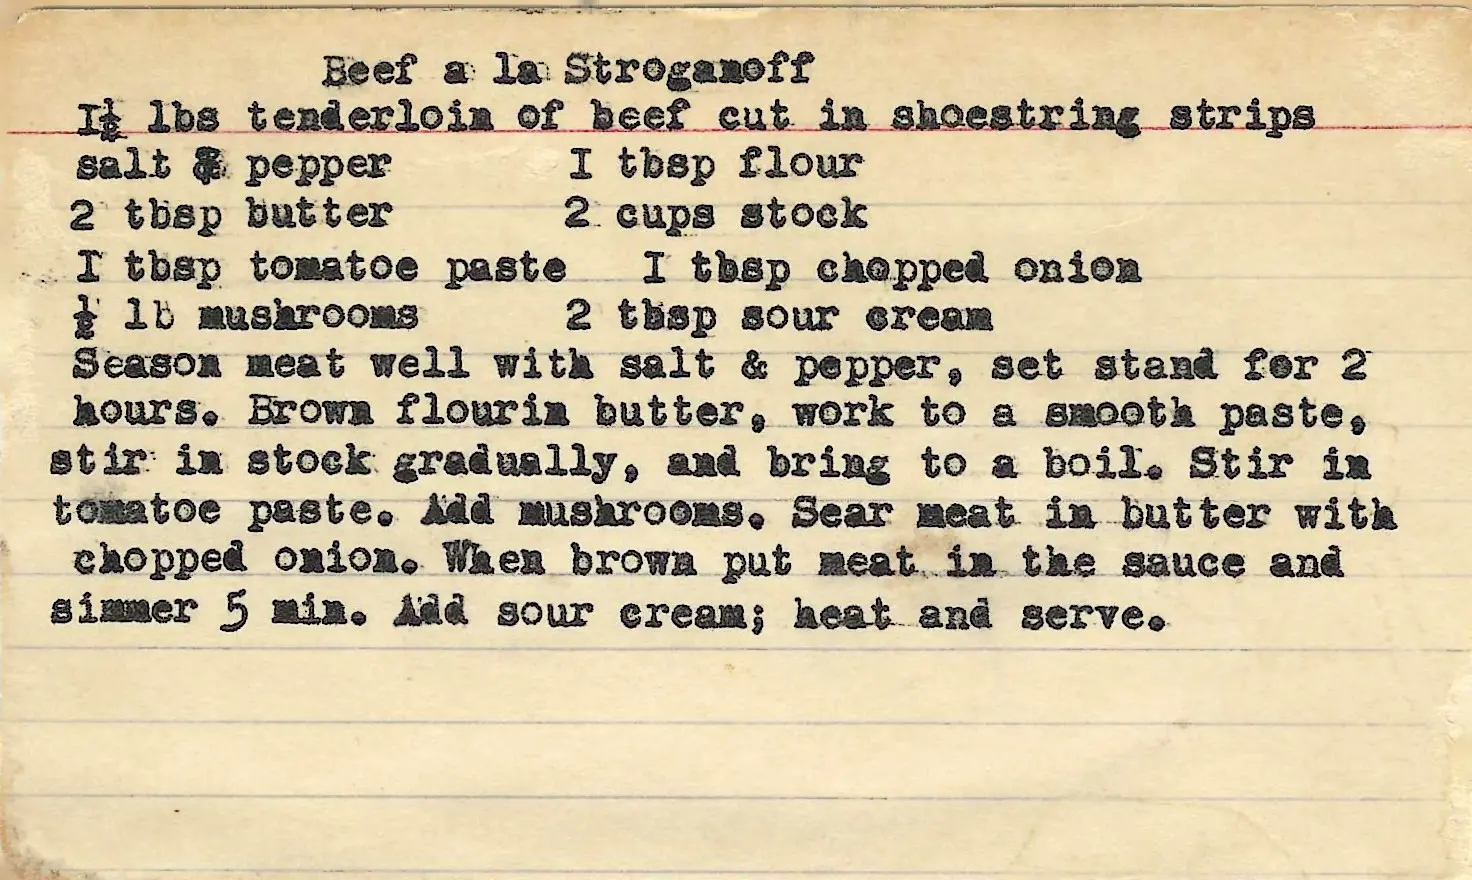 Beef a la Stroganoff
I½ lbs tenderloin of beef cut in shoestring strips
salt & pepper I tbsp flour
2 tbsp butter 2 cups stock
I tbsp tomatoe paste I tbsp chopped onion
½ lb mushrooms 2 tbsp sour cream
Season meat well with salt & pepper, set stand for 2
hours. Brown flourin butter, work to a smooth paste,
stir in stock gradually, and bring to a boil. Stir in
tomatoe paste. Add mushrooms. Sear meat in butter with
chopped onion. When brown put meat in the sauce and
simmer 5 min. Add sour cream; heat and serve.